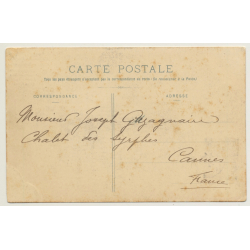 CARTE POSTALE
CORRESPONDANCE
ADRESSE
Monsieur Joseph Gazagnaire
Chalet des Sylphes
Cannes
France